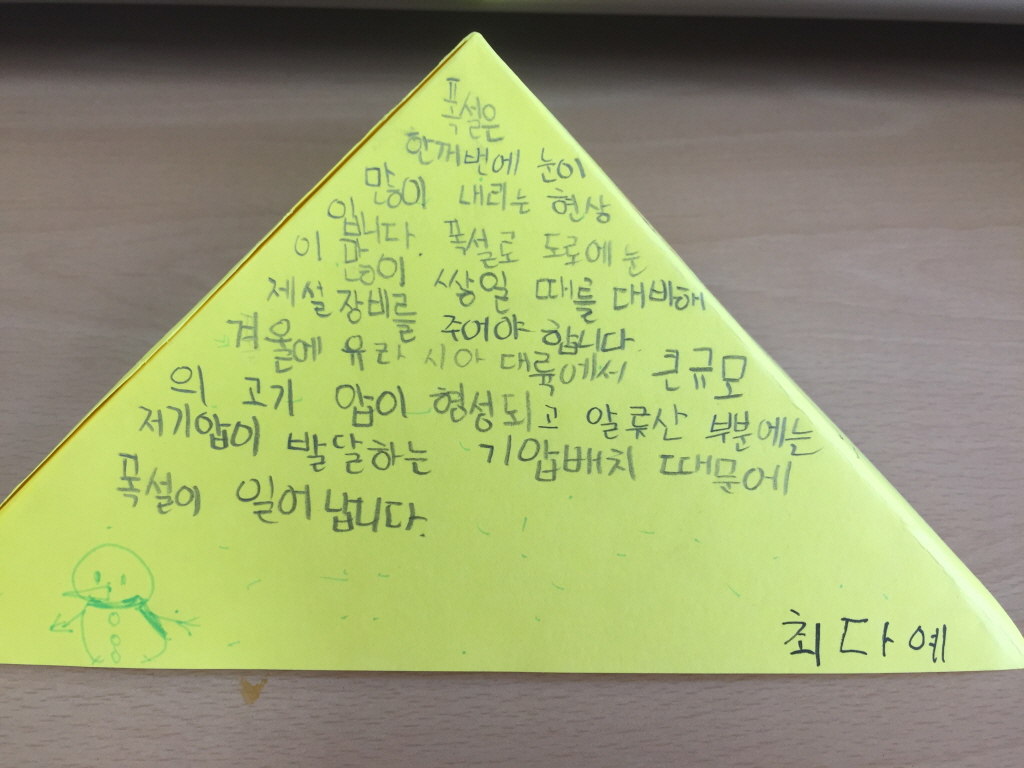 폭설은
한꺼번에 눈이
많이 내리는 현상
입니다 폭설로 도로에 눈
이 많이 쌓일 때를 대비해
제설장비를 주어야 합니다
겨울에 유라시아 대륙에서 큰규모
의 고기 압이 형성되고 알류산 부분에는
저기압이 발달하는 기압배치 때문에
폭설이 일어납니다.
최다예